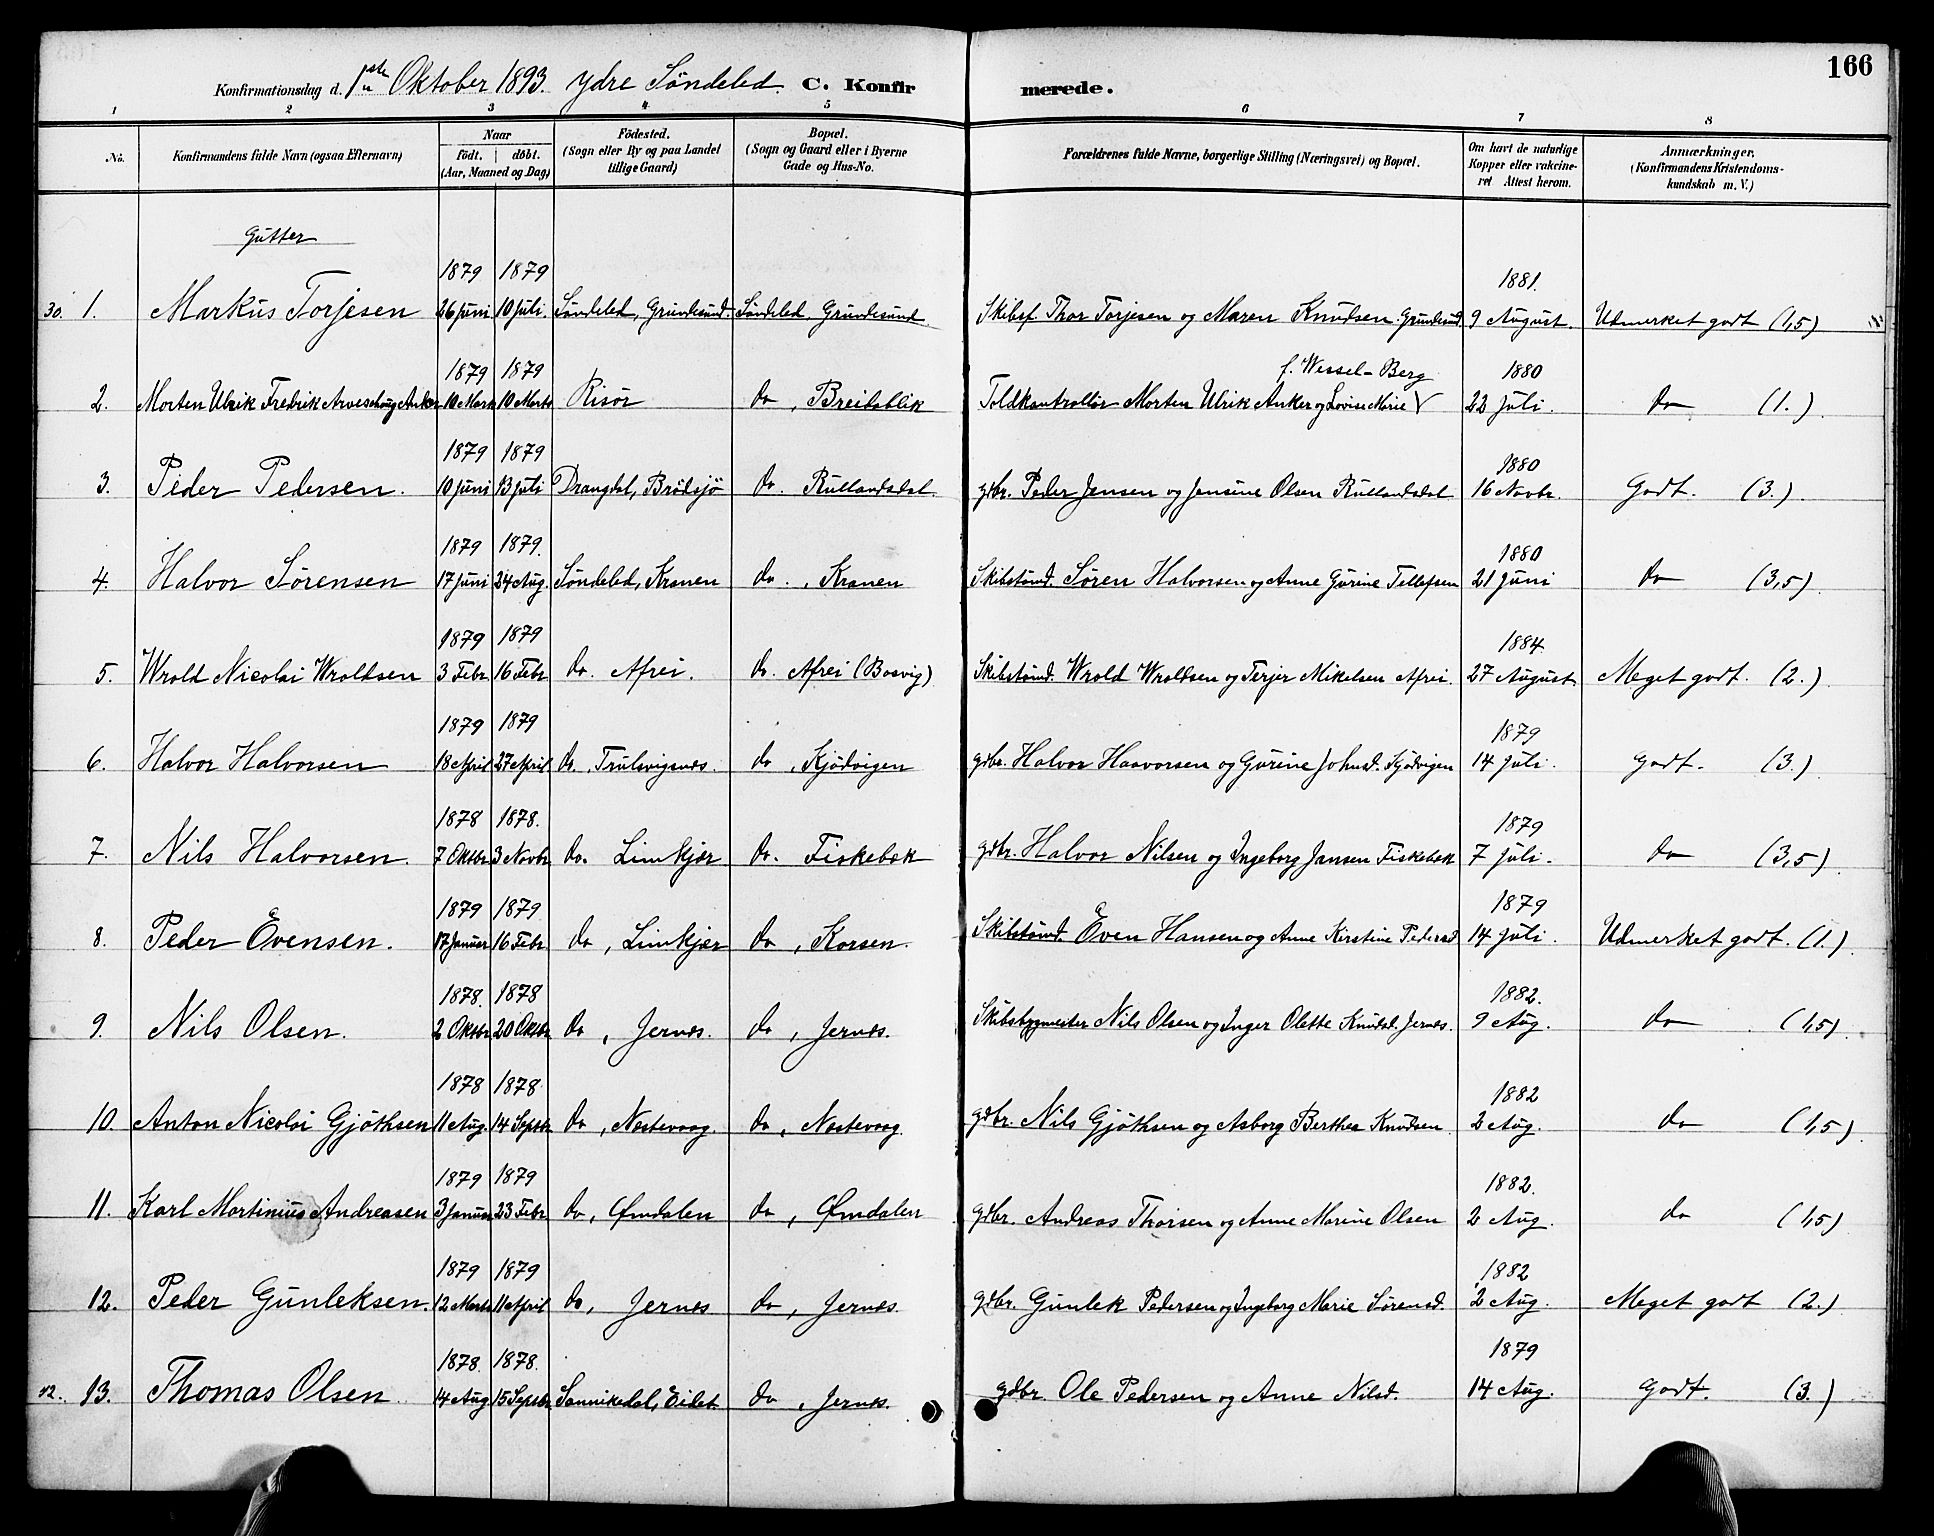 166
Konfirmationsdag d. 1ste Oktober 1893. Ydre Søndeled. C. Konfirmerede.
1 2 3 4 5 6 7 8
No. Konfirmandens fulde Navn (ogsaa Efternavn) Naar født. døbt. (Aar, Maaned og Dag) Födested. (Sogn eller By og paa Landet tillige Gaard) Bopæl. (Sogn og Gaard eller i Byerne Gade og Hus-No. Forældrenes fulde Navne, borgerlige Stilling (Næringsvei) og Bopæl. Om havt de naturlige Kopper eller vakcineret Attest herom. Anmærkninger. (Konfirmandens Kristendomskundskab m. V.)
Gutter
1879 1879 1881.
30. 1. Markus Torjesen 26 Juni 10 Juli. Søndeled, Grundesund. Søndeled, Grundesund. Skibsf. Thor Torjesen og Maren Knudsen Grundesund 9 August. Udmerket godt (1,5)
1879 1879 f. Wessel-Berg 1880
2. Morten Ulrik Fredrik Arveschoug Anker 10 Marts 10 Marts Risör do, Breidablik Toldkontrollör Morten Ulrik Anker og Lovise Marie 22 Juli. do (1.)
1879 1879 1880
3. Peder Pedersen. 10 Juni 13 Juli Drangdal, Brödsjö do. Rullandsdal gdbr. Peder Jensen og Jensine Olsen Rullandsdal 16 Novbr. Godt. (3.)
1879 1879. 1880
4. Halvor Sörensen 17 Juni 24 Aug. Söndeled, Kranen do., Kranen Skibstömd. Sören Halvorsen og Anne Gurine Tellefsen 21 Juni do (3,5)
1879 1879 1884.
5. Wrold Nicolai Wroldsen 3 Febr. 16 Febr. do. Afrei. do. Afrei (Bosvig) Skibstömd. Wrold Wroldsen og Terjer Mikelsen Afrei. 27 August Meget godt. (2.)
1879 1879 1879
6. Halvor Halvorsen 18 April 27 April do, Trulsvignes. do, Kjödvigen gdbr. Halvor Haavorsen og Gurine Johnsd. Kjödvigen 14 Juli. Godt. (3.)
1878 1878. 1879
7. Nils Halvorsen. 7 Oktbr. 3 Novbr. do. Limkjær do. Fiskebek gdbr. Halvor Nilsen og Ingeborg Jansen Fiskebek 7 Juli. do (3,5)
1879 1879 1879
8. Peder Evensen. 17 Januar 16 Febr. do, Limkjær do, Korsen. Skibstömd. Even Hansen og Anne Kirstine Pedersd. 14 Juli. Udmerket godt. (1.)
1878. 1878 1882.
9. Nils Olsen. 2 Oktbr. 20 Oktbr. do, Jernes. do, Jernes. Skibsbygmester Nils Olsen og Inger Olette Knudsd. Jernes. 9 Aug. do (1,5)
1878 1878 1882
10. Anton Nicolai Gjöthsen 11 Aug. 14 Septbr. do, Nostevaag. do, Nostevaag. gdbr. Nils Gjöthsen og Asborg Berthea Knudsen. 2 Aug. do (1,5)
1879 1879 1882.
11. Karl Martinius Andreasen 3 Januar 23 Febr. do, Ømdalen do, Ømdalen gdbr. Andreas Thorsen og Anne Marine Olsen 2 Aug. do (1,5)
1879 1879 1882
12. Peder Gunleksen. 12 Marts 11 April do, Jernes do, Jernes. gdbr. Gunlek Pedersen og Ingeborg Marie Sörensd. 2 Aug. Meget godt (2.)
1878. 1878. 1879
12. 13. Thomas Olsen 14 Aug 15 Septbr. Sannikedal, Eidet do, Jernes. gdbr. Ole Pedersen og Anne Nilsd. 14 Aug. Godt. (3.)